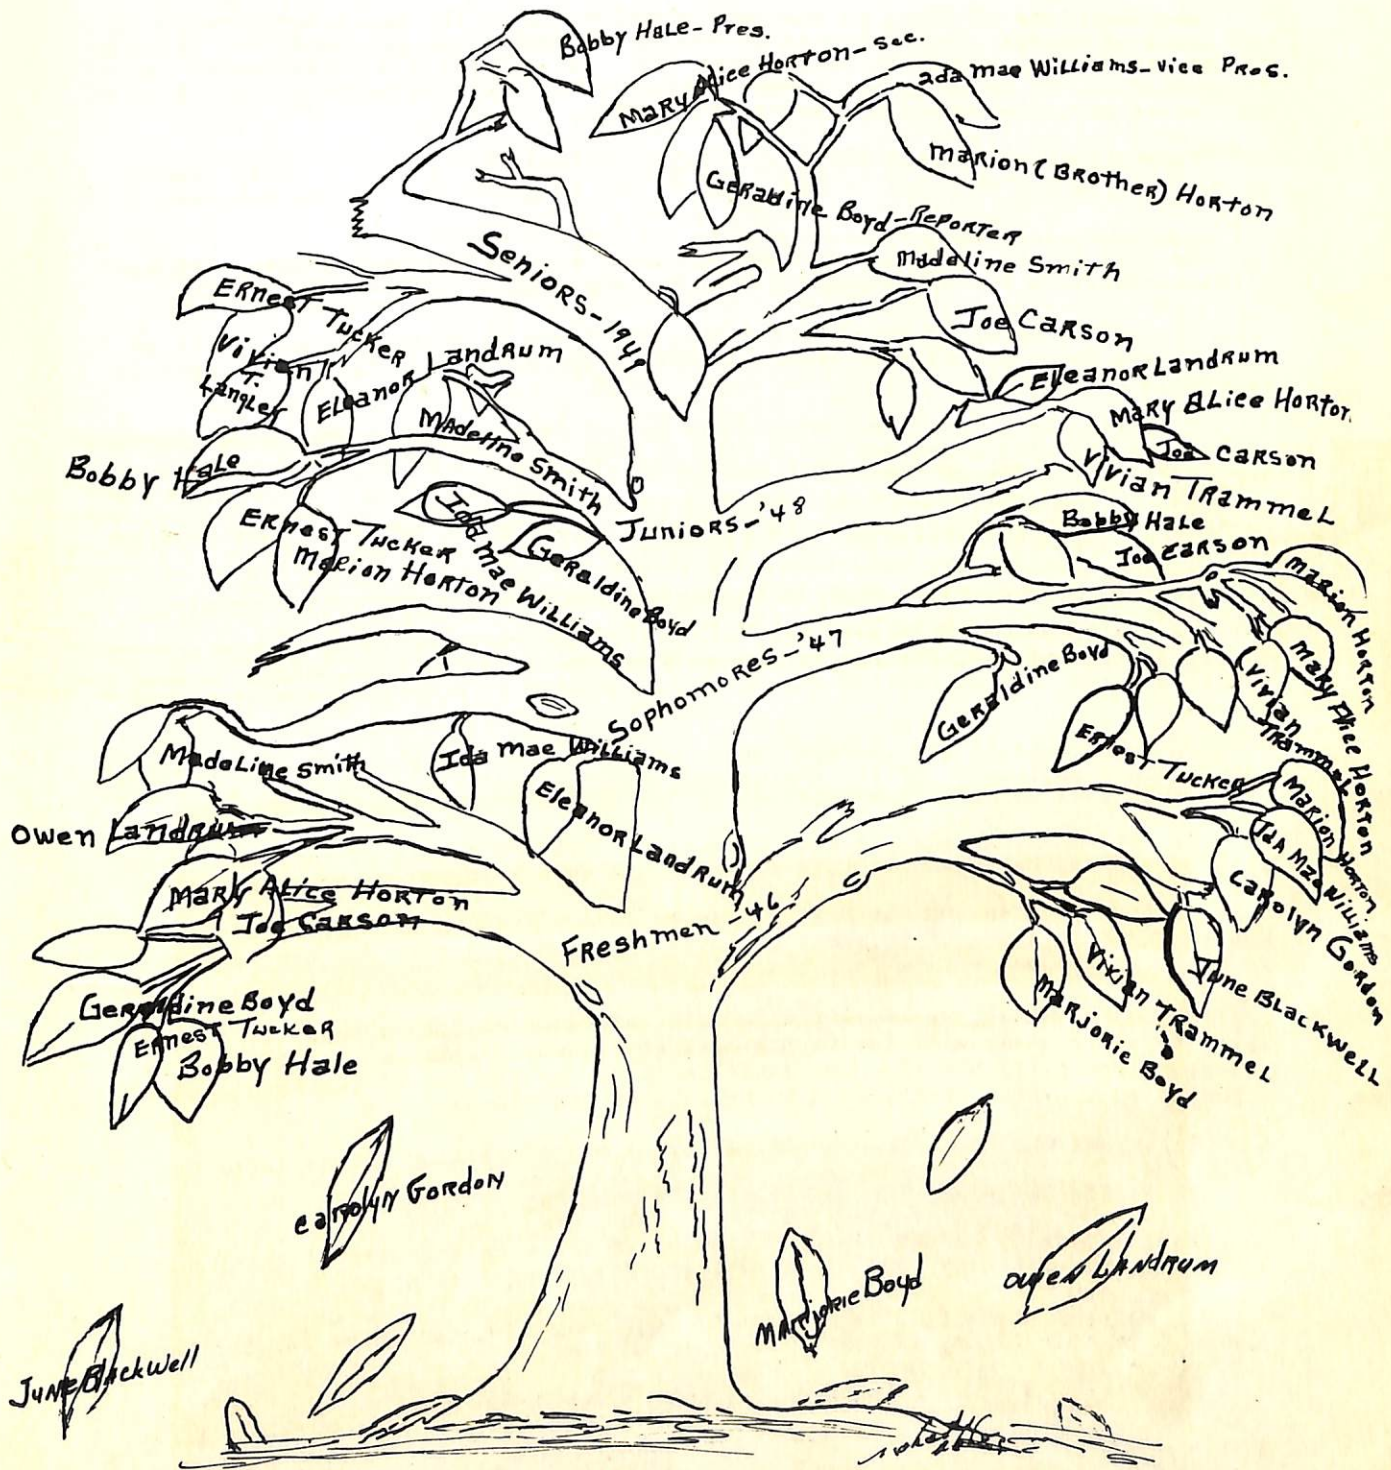 Bobby Hale - Pres.
Mary Alice Horton - Sec.
Ida Mae Williams - Vice Pres.
Marion (Brother) Horton
Geraldine Boyd - Reporter
Madeline Smith
Joe Carson
Seniors - 1949
Ernest Tucker
Vivian T. Langley
Eleanor Landrum
Madeline Smith
Bobby Hale
Ernest Tucker
Marion Horton
Ida Mae Williams
Geraldine Boyd
Juniors - '48
Eleanor Landrum
Mary Alice Horton
Joe Carson
Vivian Trammel
Bobby Hale
Joe Carson
Marion Horton
Mary Alice Horton
Vivian Trammel
Geraldine Boyd
Ernest Tucker
Sophomores - '47
Madeline Smith
Ida Mae Williams
Eleanor Landrum
Owen Landrum
Mary Alice Horton
Joe Carson
Geraldine Boyd
Ernest Tucker
Bobby Hale
Freshmen - 46
Marion Horton
Ida Mae Williams
Carolyn Gordon
June Blackwell
Vivian Trammel
Marjorie Boyd
Carolyn Gordon
Marjorie Boyd
Owen Landrum
June Blackwell